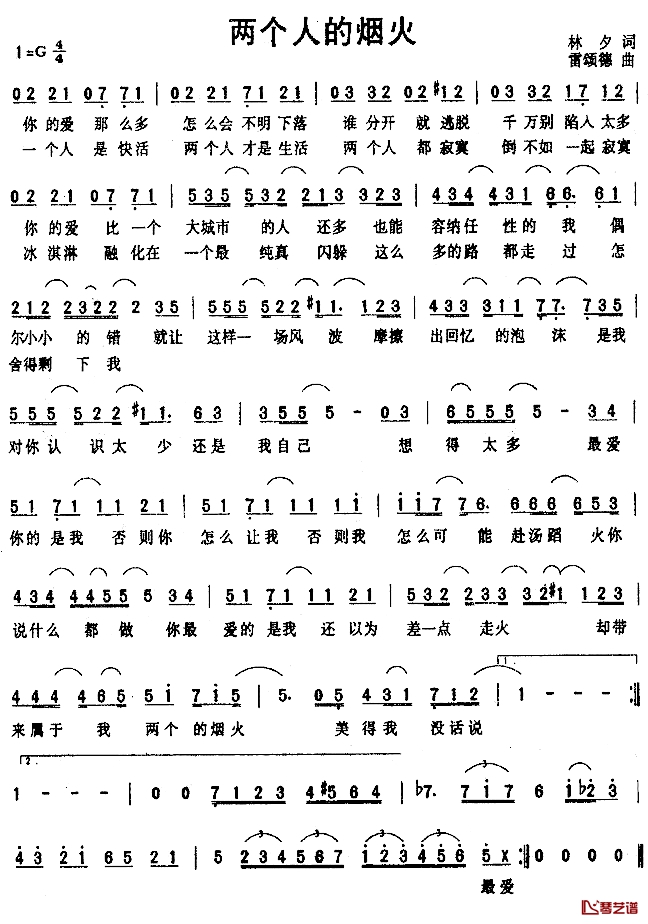 两个人的烟火
1=G 4/4
林夕 词
雷颂德 曲
02 21 07 71 | 02 21 07 71 | 03 32 02 #12 | 03 32 17 12 |
你的爱 那么多 怎么会 不明下落 谁分开 就逃脱 千万别 陷入太多
一个人 是快活 两个人 才是生活 两个人 都寂寞 倒不如 一起寂寞
02 21 07 71 | 535 532 213 323 | 434 431 66. 61 |
你的爱 比一个 大城市 的人 还多 也能 容纳任 性的 我 偶
冰淇淋 融化在 一个最 纯真 闪躲 这么 多的路 都走 过 怎
212 2322 2 35 | 555 522 #11. 123 | 433 311 77. 735 |
尔小小 的错 就让 这样一 场风 波 摩擦 出回忆 的泡 沫 是我
舍得剩 下我
555 522 #11. 63 | 355 5 - 03 | 6555 5 - 34 |
对你认 识太 少 还是 我自己 想 得太多 最爱
51 71 11 21 | 51 71 11 11 | 1176 76. 666 653 |
你的是我 否则你 怎么让我 否则我 怎么可 能 赴汤蹈 火你
434 4455 5 34 | 51 71 11 21 | 532 2333 32#1 123 |
说什么 都做 你最 爱的是我 还以为 差一点 走火 却带
444 465 51 715 | 5. 05 431 712 | 1 - - - :||
来属于 我 两个 的烟火 美得我 没话说
1.
2.
1 - - - | 00 7123 4#564 | b7. 717 6 1b23 |
43 21 65 21 | 5 234567 123456 5X :|| 0000 ||
最爱
琴艺谱